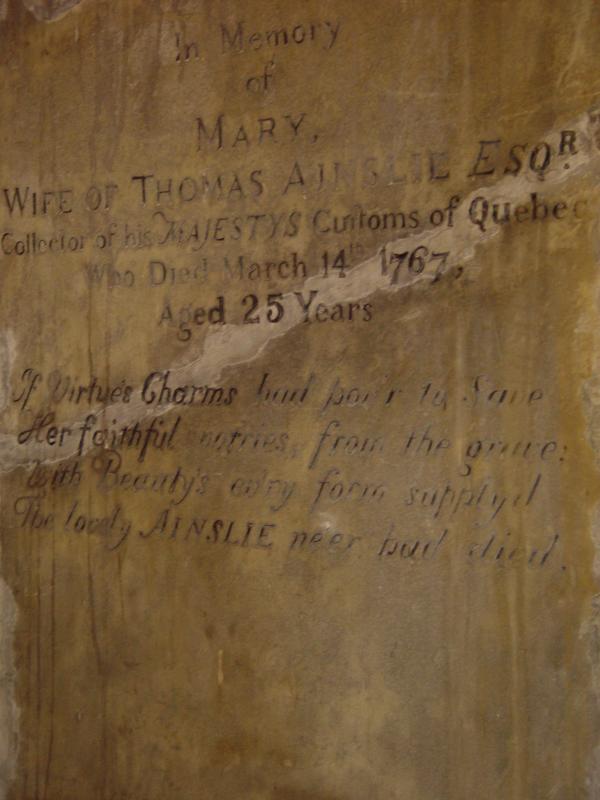 In Memory
of
MARY,
WIFE OF THOMAS AINSLIE ESQR.
Collector of his MAJESTYS Customs of Quebec
Who Died March 14th 1767,
Aged 25 Years
If Virtue's Charms had pow'r to Save
Her faithful votries, from the grave:
With Beauty's ev'ry form supply'd
The lovely AINSLIE neer had died.